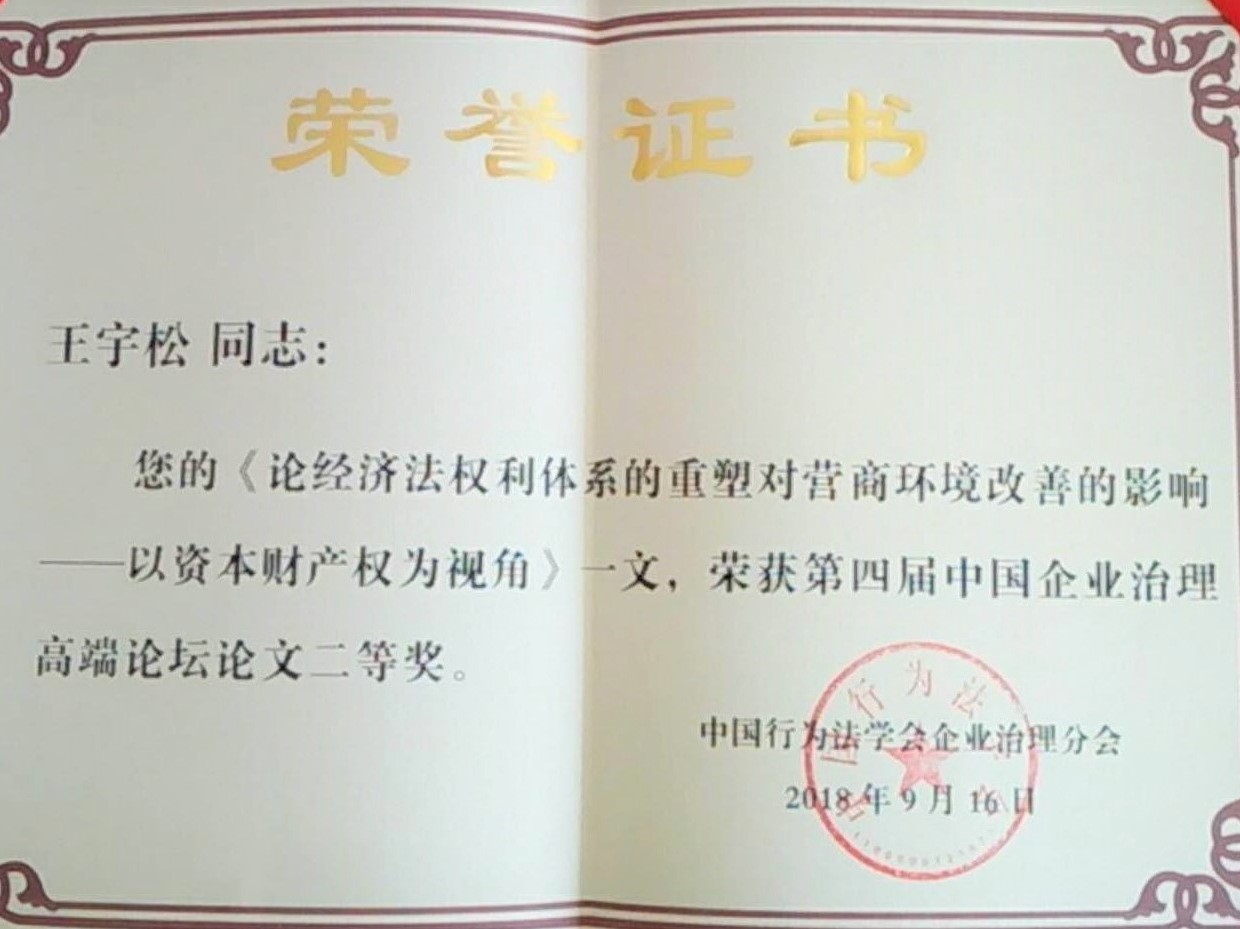 荣誉证书
王宇松 同志：
您的《论经济法权利体系的重塑对营商环境改善的影响
——以资本财产权为视角》一文，荣获第四届中国企业治理
高端论坛论文二等奖。
中国行为法学会企业治理分会
2018年9月16日